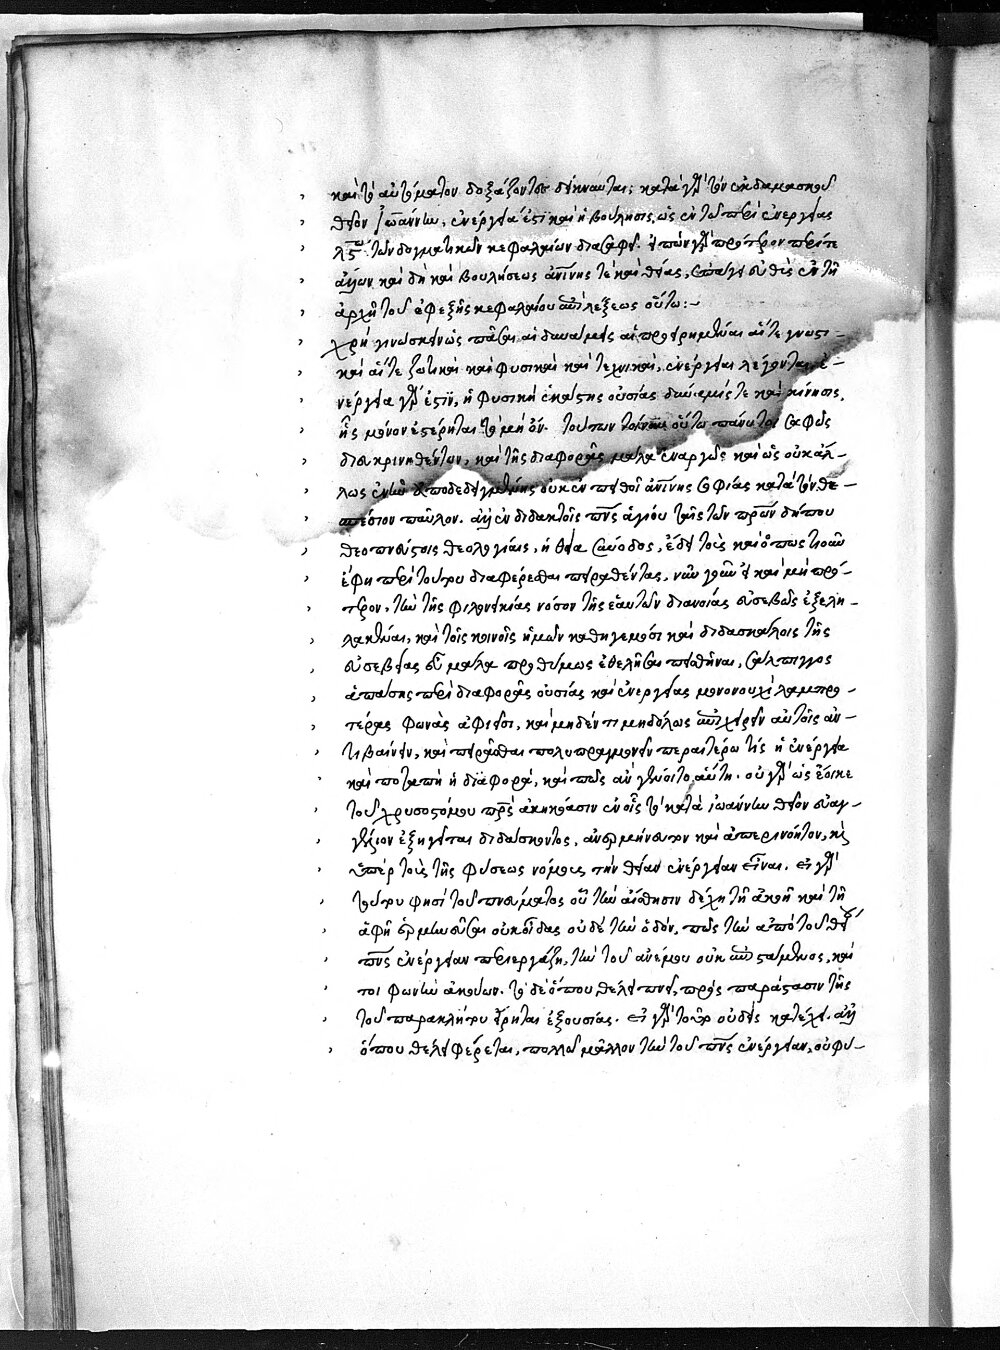 καὶ τὸ αὐτόματον δοξάζοντες δείκνυνται; κατὰ γὰρ τὸν ἐκ δαμασκοῦ
θεῖον Ἰωάννην, ἐνέργειά ἐστι καὶ ἡ βούλησις, ὡς ἐν τῷ περὶ ἐνεργείας
λς΄ῳ τῶν δογματικῶν κεφαλαίων διασαφεῖ. εἰπὼν γὰρ πρότερον περί τε
καὶ δὴ καὶ βουλήσεως ἀν(θρωπ)ίνης τὲ καὶ θείας, ἐπάγει εὐθὺς ἐν τῇ
ἀρχῇ τοῦ ἐφεξῆς κεφαλαίου ἐπὶ λέξεως οὕτω:-
χρὴ γινώσκειν ὡς πᾶσαι αἱ δυνάμεις αἱ προειρημέναι αἵ τε γνωστι-
καὶ αἵ τε ζωτικαὶ καὶ φυσικαὶ καὶ τεχνικαὶ, ἐνέργειαι λέγονται. ἐ-
νέργεια γάρ ἐστιν, ἡ φυσικὴ ἑκάστης οὐσίας δύναμίς τε καὶ κίνησις,
ἧς μόνον ἐστέρηται τὸ μὴ ὄν. τούτων τοίνυν οὕτω πάνυ τοι σαφῶς
διευκρινηθέντων, καὶ τῆς διαφορᾶς μάλα ἐναργῶς καὶ ὡς οὐκ ἄλ-
λως ἐνῆν ἀποδεδειγμένης οὐκ ἐν πειθοῖ ἀν(θρωπ)ίνης σοφίας κατὰ τὸν θε-
σπέσιον παῦλον. ἀλλ' ἐν διδακτοῖς πν(εύματο)ς ἁγίου τῆς τῶν π(ατέ)ρων δήπου
θεοπνεύστοις θεολογίαις, ἡ θεία σύνοδος, ἔδει τοὺς καὶ ὁπωστιοῦν
ἔφη περὶ τούτου διαφέρεσθαι πειραθέντας, νῦν γοῦν εἰ καὶ μὴ πρό-
τερον, τὴν τῆς φιλονεικίας νόσον τῆς ἑαυτῶν διανοίας εὐσεβῶς ἐξελη-
λακέναι, καὶ τοῖς κοινοῖς ἡμῶν καθηγεμόσι καὶ διδασκάλοις τῆς
εὐσεβείας εὖ μάλα προθύμως ἐθελῆσαι πεισθῆναι, σάλπιγγος
ἁπάσης περὶ διαφορᾶς οὐσίας καὶ ἐνεργείας μονονουχὶ λαμπρο-
τέρας φωνὰς ἀφιεῖσι, καὶ μηδέν τι μηδόλως ἐπιχειρεῖν αὐτοῖς ἀν-
τιβαίνειν, καὶ πειρᾶσθαι πολυπραγμονεῖν περαιτέρω τίς ἡ ἐνέργεια
καὶ ποταπὴ ἡ διαφορά, καὶ πῶς ἂν γένοιτο αὕτη. οὐ γὰρ ὡς ἔοικε
τοῦ χρυσοστόμου π(ατ)ρ(ὸ)ς ἀκηκόασιν ἐν οἷς τὸ κατὰ ἰωάννην θεῖον εὐαγ-
γέλιον ἐξηγεῖται διδάσκοντος, ἀνερμήνευτον καὶ ἀπερινόητον, κ(αὶ)
ὑπὲρ τοὺς τῆς φύσεως νόμους τὴν θείαν ἐνέργειαν εἶναι. εἰ γὰρ
τούτου φησὶ τοῦ πνεύματος οὗ τὴν αἴσθησιν δέχῃ τῇ ἀκοῇ καὶ τῇ
ἁφῇ ἑρμηνεῦσαι οὐκ οἶδας οὐδὲ τὴν ὁδὸν, πῶς τὴν ἀπὸ τοῦ θείου
πν(εύματο)ς ἐνέργειαν περιεργάζῃ, τὴν τοῦ ἀνέμου οὐκ ἐπιστάμενος, καί
τοι φωνὴν ἀκούων. τὸ δὲ ὅπου θέλει πνεῖ, πρὸς παράστασιν τῆς
τοῦ παρακλήτου εἴρηται ἐξουσίας. εἰ γὰρ τοῦτο οὐδεὶς κατέχει. ἀλλ'
ὅπου θέλει φέρεται, πολλῷ μᾶλλον τὴν τοῦ πν(εύματο)ς ἐνέργειαν, οὐ φύ-